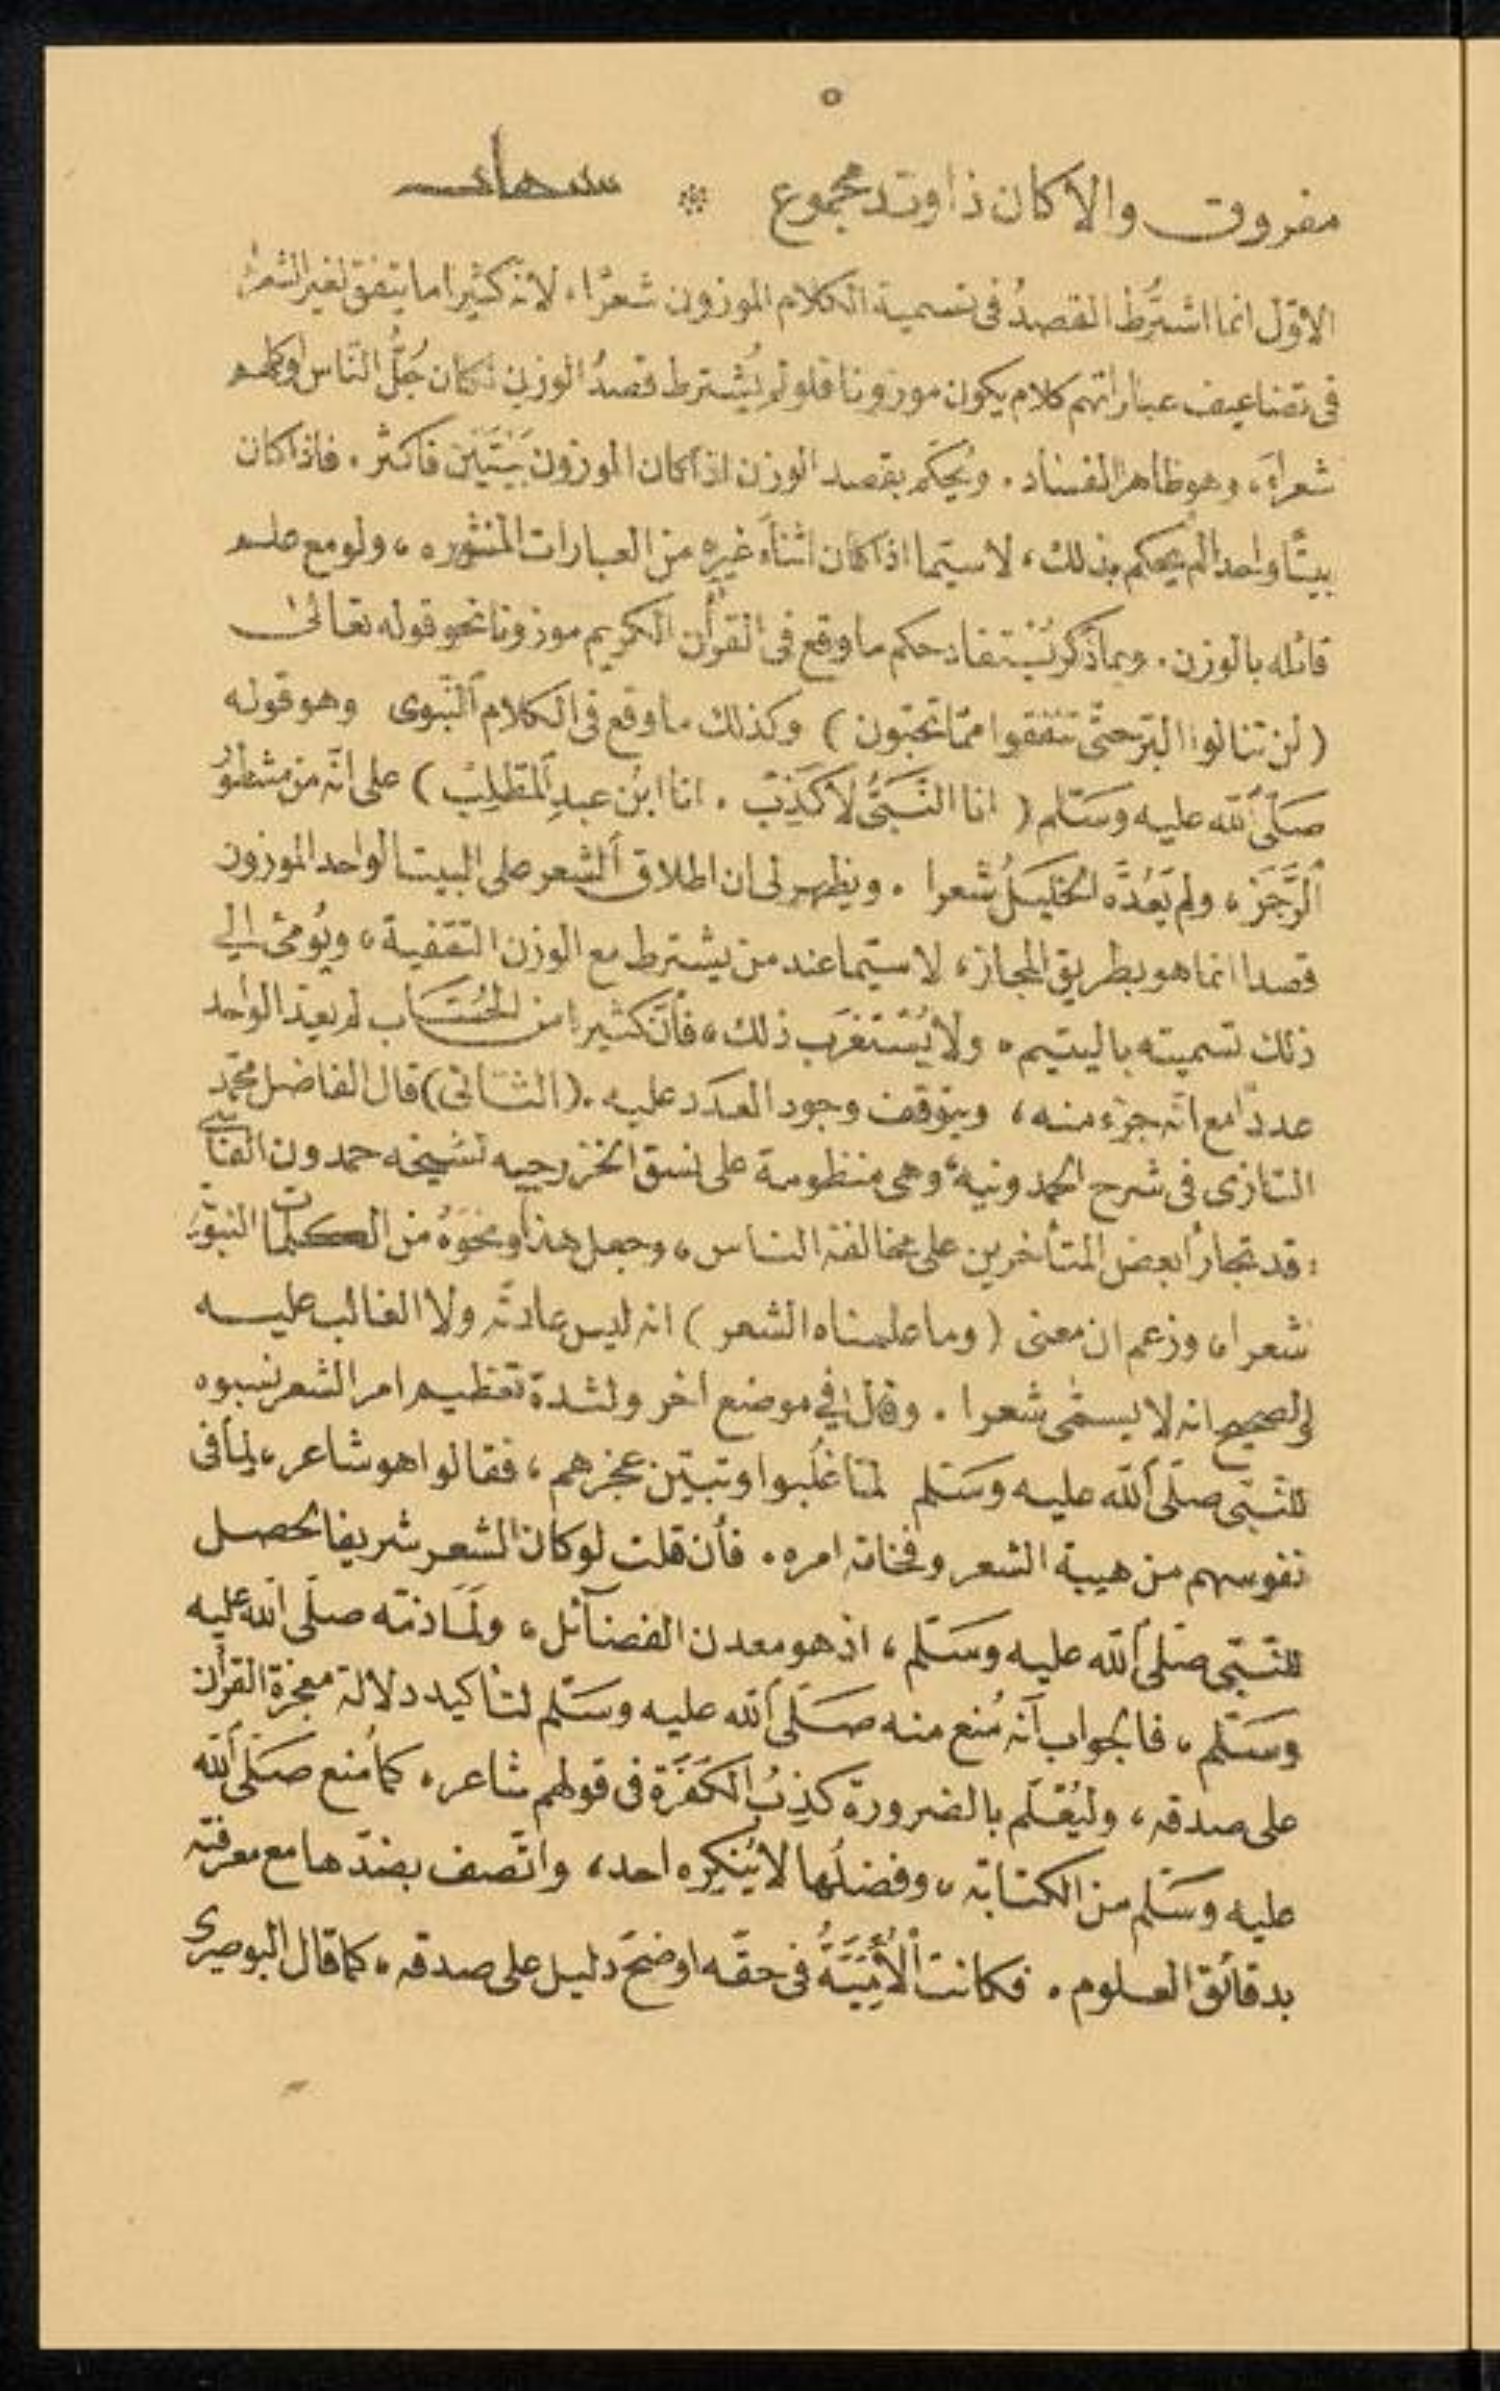 ٥
مفروق والا كان ذا وتد مجموع * تنبيهات
الاوّل انما اشتُرط القصدُ فى تسمية الكلام الموزون شعرًا، لانه كثيرا ما يتفق لغير الشعراء
فى تضاعيف عباراتهم كلام يكون موزونا فلو لم يُشترط قصدُ الوزن لكان جُلُّ النّاس او كلهم
شعراء، وهو ظاهر الفساد. ويُحكَم بقصد الوزن اذا كان الموزون بَيْتَيْن فاكثر. فاذا كان
بيتًا واحدا لم يحكم بذلك، لاسيّما اذا كان اثناءَ غيره من العبارات المنثوره، ولو مع علم
قائله بالوزن. وبما ذُكر يُسْتفاد حكم ما وقع فى القرأن الكريم موزونا نحو قوله تعالىٰ
(لن تنالوا البرّ حتّى تنفقوا ممّا تحبّون) وكذلك ما وقع فى الكلام النّبوى وهو قوله
صَلّى اَلله عليه وَسَلّم (انا النَّبىُّ لاَ كَذِبْ. انا ابْن عبدِ اَلمطّلِبْ) على انّه من مشطورُ
اَلرَّجَز، ولم يَعُدَّه الخليلُ شعرا. ويظهر لى ان اطلاق اَلشعر على البيت الواحد الموزون
قصدا انما هو بطريق المجاز، لاسيّما عند من يشترط مع الوزن التقفية، ويُومئ الى
ذلك تسميته باليتيم، ولا يُسْتغرَب ذلك، فأنّ كثيرا من الحُسّاب لم يعدّ الواحد
عددًا مع انّه جزء منه، ويتوقف وجود العدَد عليه. (الثانى) قال الفاضل محمّد
التازى فى شرح الحمدونية، وهى منظومة على نسق الخزرجيه لشيخه حمدون الفاسى
: قد تجارأ بعض المتأخرين على مخالفة الناس، وجعل هذا ونحوَهُ من الكلمات النبويّه
شعرا، وزعم ان معنى (وما علمناه الشعر) انه ليس عادتَه ولا الغالب عليه
والصحيح انه لا يسمّى شعرا. وقال فى موضع أخر ولشدة تعظيم امر الشعر نسبوه
للنّبى صلّى اَلله عليه وَسَلم لمّا غُلبوا وتبيّن عجزهم، فقالوا هو شاعر، لِما فى
نفوسهم من هيبة الشعر وفخامة امره. فأن قلت لو كان الشعر شريفا لحصل
للنّبى صَلى اَلله عليه وسَلّم، اذ هو معدن الفضآئل، ولَمَا ذمّه صلّى اَلله عليه
وَسَلم، فالجواب اَنه مُنع منه صَلَّى اَلله عليه وسَلم لتاكيد دلالة معجزة القرأن
على صدقه، وليُعْلَم بالضرورة كَذِبُ الكَفَرَة فى قولهم شاعر، كما مُنع صَلَّى اَلله
عليه وَسَلم من الكتابة، وفضلُها لا يُنكِره احد، واتّصف بضدّها مع معرفته
بدقائق العلوم. فكانت اْلأُمِّيَّةُ فى حقّه اوضحَ دليل على صدقه، كما قال البوصيرى